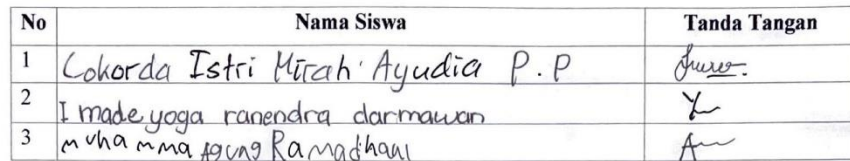 No Nama Siswa Tanda Tangan
1 Cokorda Istri Mirah Ayudia P.P
2 I made yoga ranendra darmawan
3 muhamma Agung Ramadhani